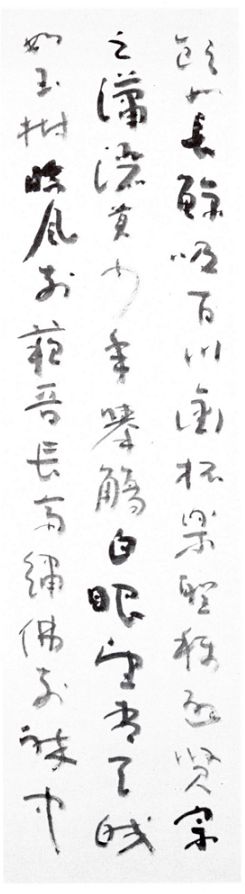 飲如長鯨吸百川銜杯樂聖稱避賢宗
之瀟灑美少年舉觴白眼望青天皎
如玉樹臨風前蘇晉長齋繡佛前醉中